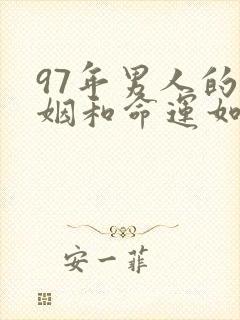 97年男人的
姻和命运如
安一菲